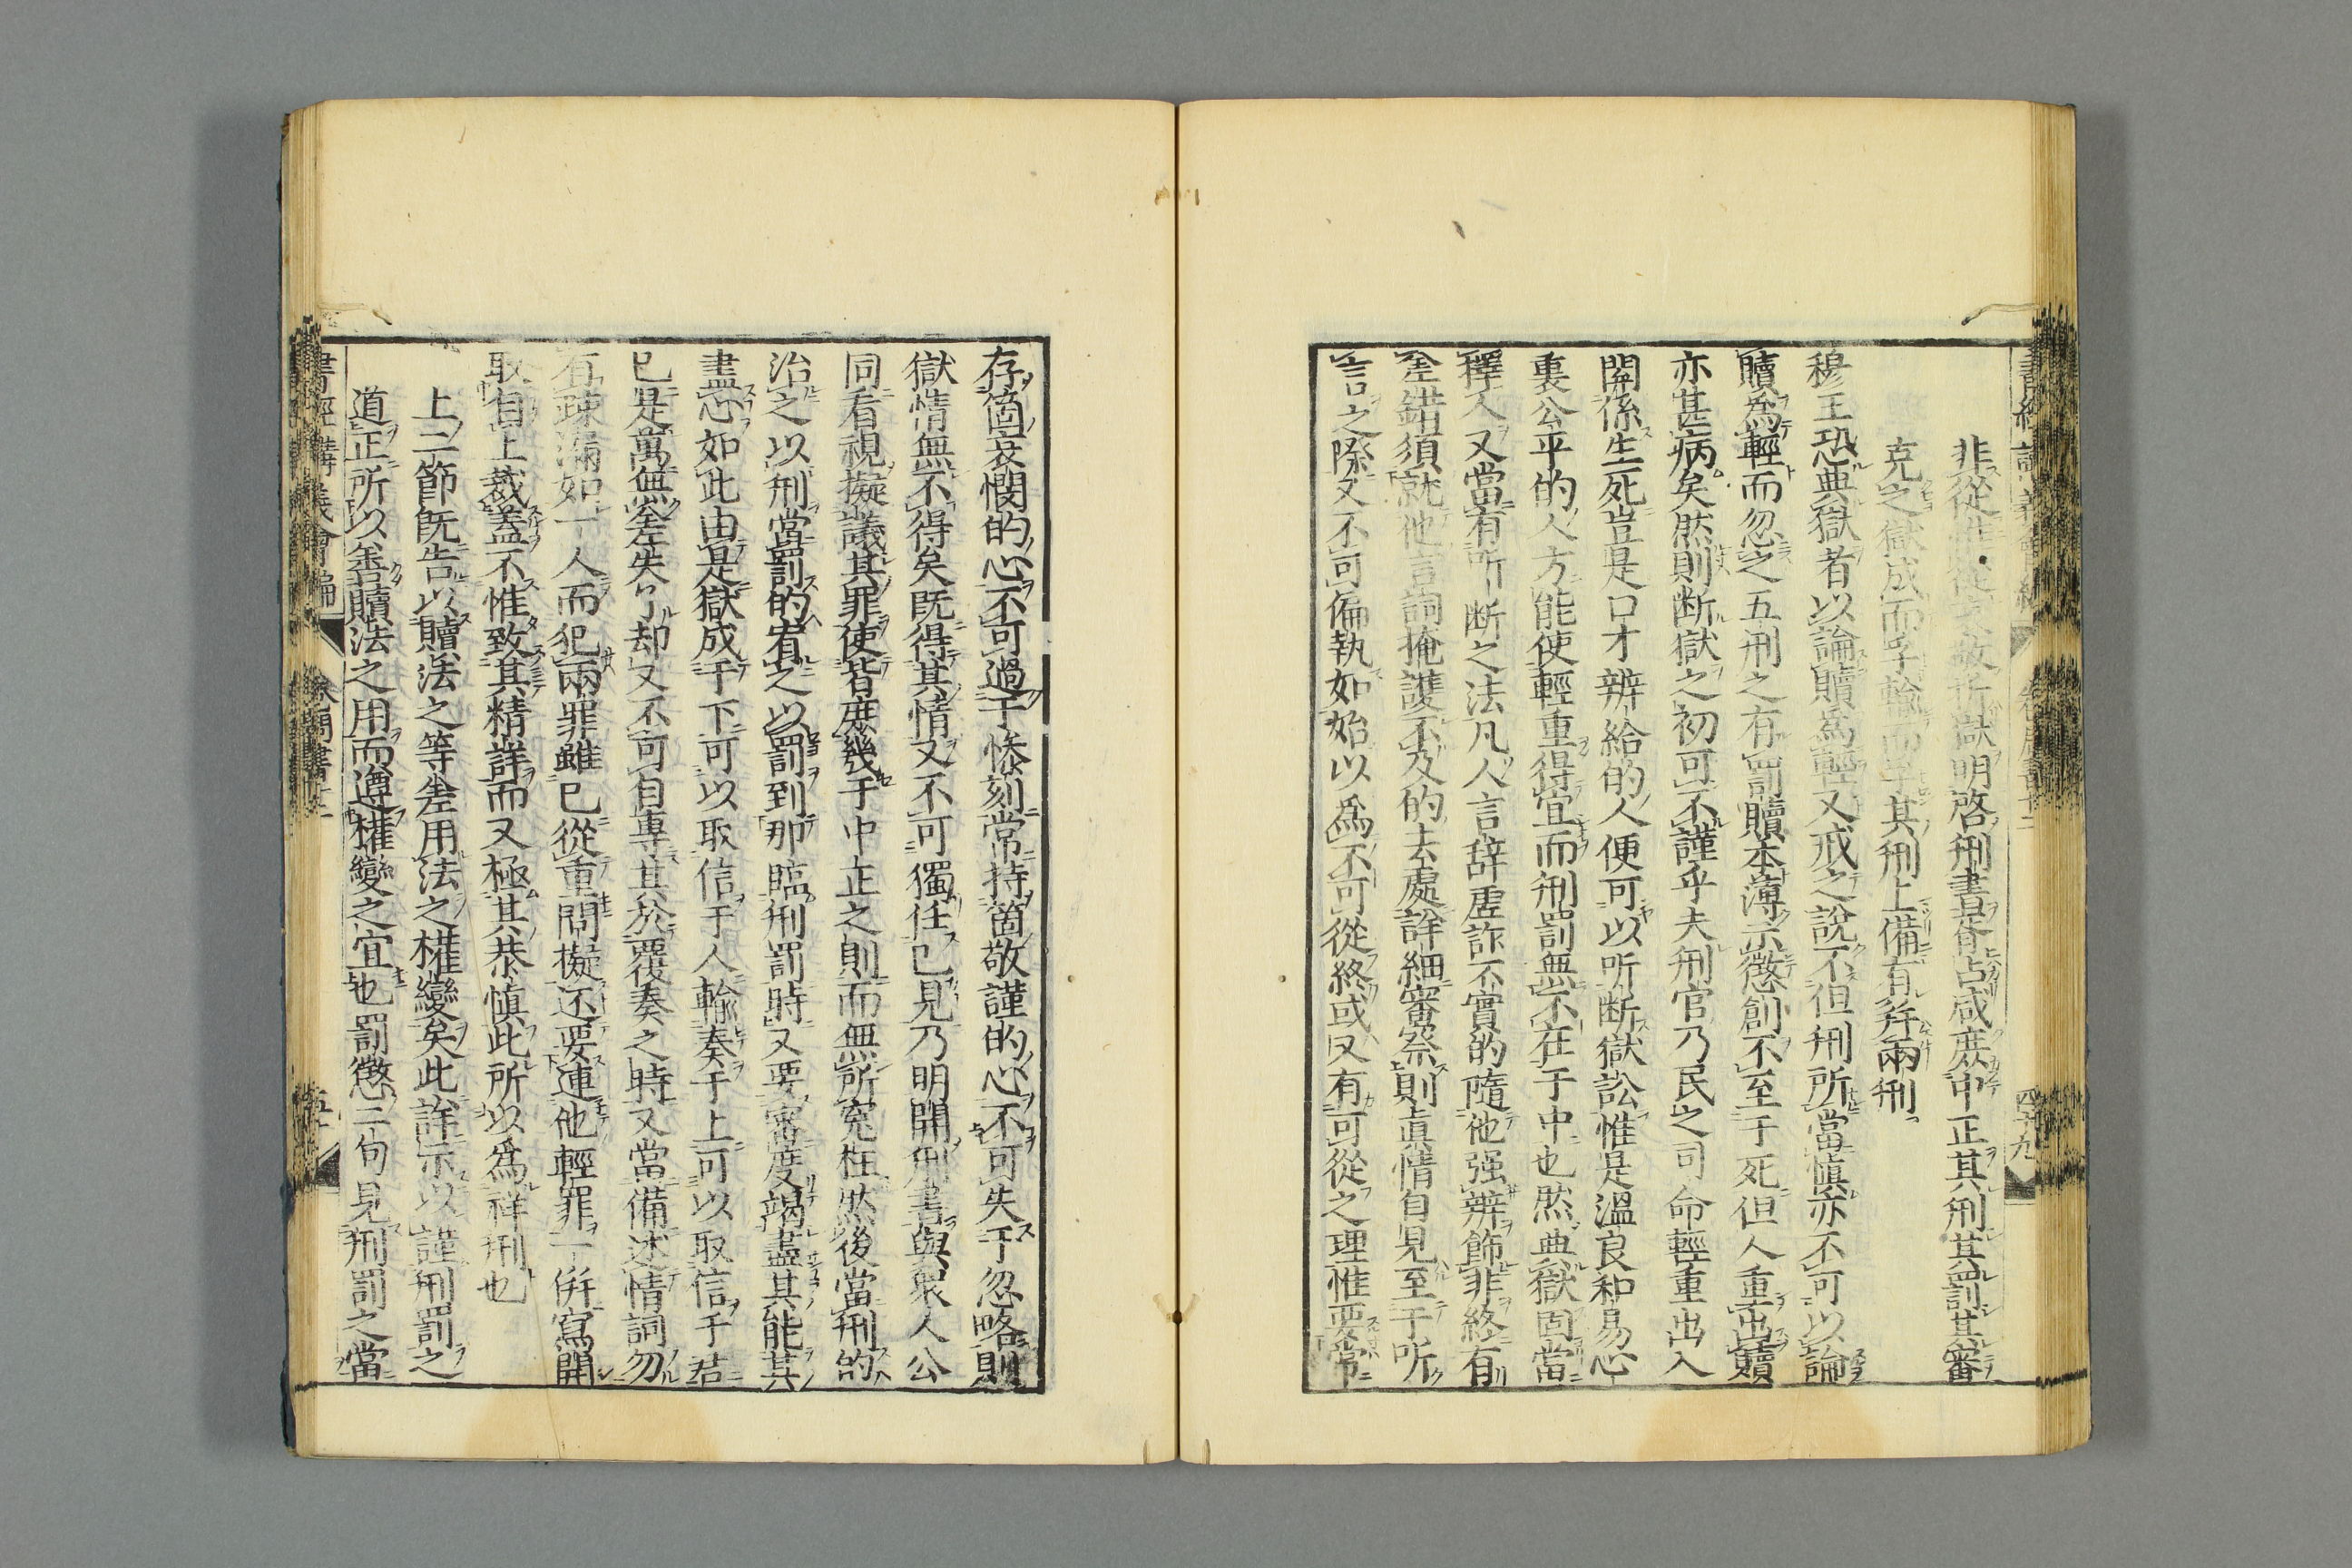 非從惟從哀敬折獄明啓刑書胥占咸庶中正其刑其罰其審
克之獄成而孚輸而孚其刑上備有幷兩刑
穆王恐典獄者以論贖爲輕又戒之說不但刑所當愼亦不可以論
贖爲輕而忽之五刑之有罰贖本薄示懲創不至于死但人重出贖
亦甚病矣然則断獄之初可不謹乎夫刑官乃民之司命輕重出入
關係生死豈是口才辨給的人便可以听断獄訟惟是溫良和易心
裏公平的人方能使輕重得宜而刑罰無不在于中也然典獄固當
擇人又當有所断之法凡人言辞虛詐不實的隨他强辨飾非終有
差錯須就他言詞掩護不及的去處詳細審察則眞情自見至于听
言之際又不可偏執如始以爲不可從終或又有可從之理惟要常
存箇哀憫的心不可過于慘刻常持箇敬謹的心不可失于忽略則
獄情無不得矣既得其情又不可獨任己見乃明開刑書與衆人公
同看視擬議其罪使皆庶幾于中正之則而無所寃枉然後當刑的
治之以刑當罰的宥之以罰到那臨刑罰時又要審度竭盡其能其
盡心如此由是獄成于下可以取信于人輸奏于上可以取信于君
已是萬無差失了却又不可自專其於覆奏之時又當備述情詞勿
有疎漏如一人而犯兩罪雖已從重問擬还要連他輕罪一倂寫開
取自上裁蓋不惟致其精詳而又極其恭愼此所以爲祥刑也
上二節既告以贖法之等差用法之權變矣此詳示以謹刑罰之
道正所以善贖法之用而遵權變之宜也罰懲二句見刑罰之當
書經講義會編